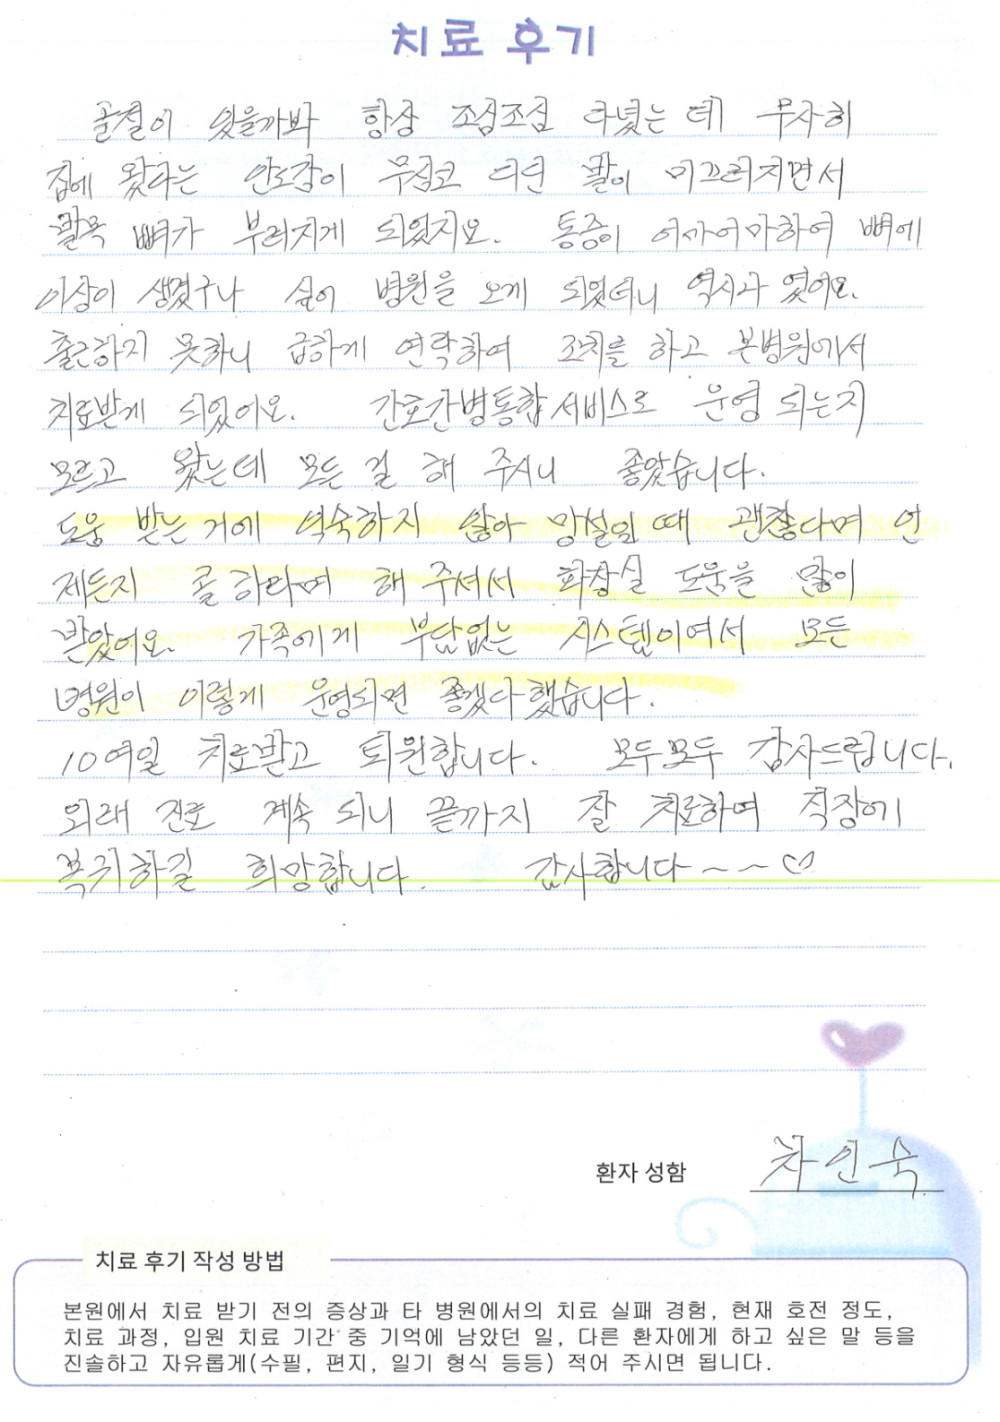 치료 후기
골절이 있을까봐 항상 조심조심 다녔는 데 무사히
집에 왔다는 안도감이 무심코 디딘 발이 미끄러지면서
발목 뼈가 부러지게 되었지요. 통증이 어마어마하여 뼈에
이상이 생겼구나 싶어 병원을 오게 되었더니 역시나 였어요.
출근하지 못하니 급하게 연락하여 조치를 하고 본병원에서
치료받게 되었어요. 간호간병통합서비스로 운영 되는지
모르고 왔는데 모든 걸 해 주시니 좋았습니다.
도움 받는 거에 익숙하지 않아 망설일 때 괜찮다며 언
제든지 콜 하라며 해 주셔서 화장실 도움을 많이
받았어요. 가족에게 부담없는 시스템이여서 모든
병원이 이렇게 운영되면 좋겠다 했습니다.
10여일 치료받고 퇴원합니다. 모두모두 감사드립니다.
외래 진료 계속 되니 끝까지 잘 치료하여 직장에
복귀하길 희망합니다. 감사합니다~~♡
환자 성함 차인숙
치료 후기 작성 방법
본원에서 치료 받기 전의 증상과 타 병원에서의 치료 실패 경험, 현재 호전 정도,
치료 과정, 입원 치료 기간 중 기억에 남았던 일, 다른 환자에게 하고 싶은 말 등을
진솔하고 자유롭게(수필, 편지, 일기 형식 등등) 적어 주시면 됩니다.